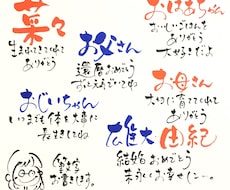 菜々
生まれてきてくれて
ありがとう
お父さん
還暦おめでとう
おばあちゃん
おいしいごはんを
ありがとう
大好きだよ
おじいちゃん
いつまでも体を大事に
長生きしてね
お母さん
大切に育ててくれて
ありがとう
雄大 由紀
結婚おめでとう
末永くお幸せに
筆文字
お書きします。